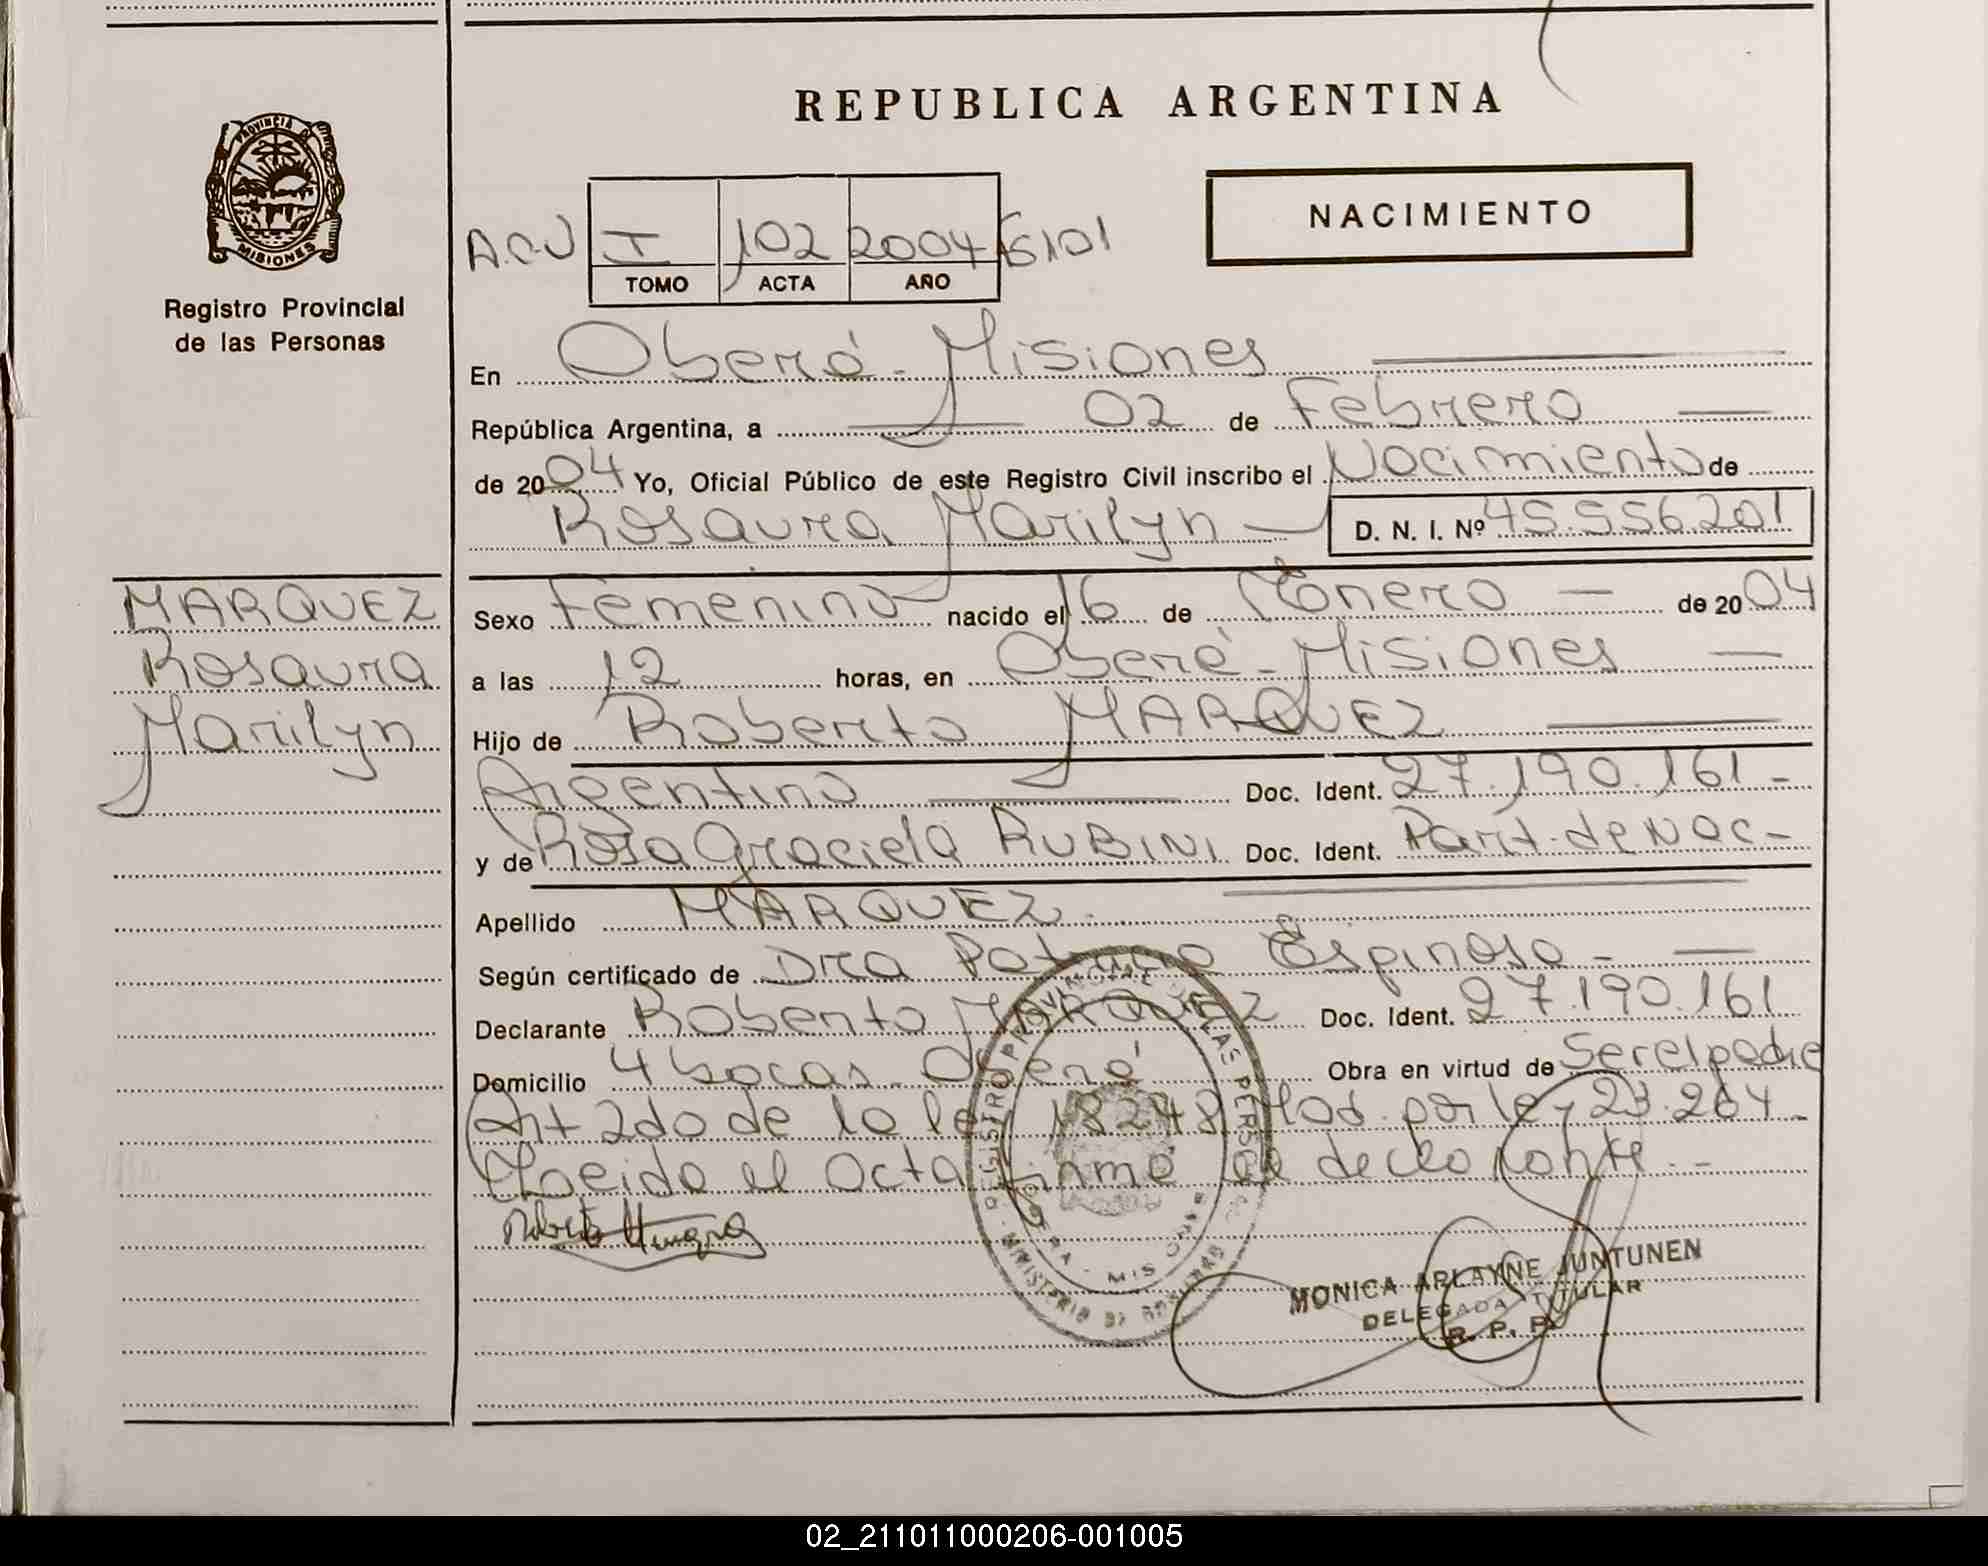 REPUBLICA ARGENTINA
PROVINCIA D
MISIONES
Registro Provincial
de las Personas
NACIMIENTO
A.C.U I 102 2004 6101
TOMO ACTA AÑO
En Oberá - Misiones
República Argentina, a 02 de Febrero
de 2004 Yo, Oficial Público de este Registro Civil inscribo el Nacimiento de
Rosaura Marilyn D. N. I. Nº 45.556.201
MARQUEZ
Rosaura
Marilyn
Sexo Femenino nacido el 16 de Enero de 2004
a las 12 horas, en Oberá - Misiones
Hijo de Roberto MARQUEZ
Argentino Doc. Ident. 27.190.161 -
y de Rosa Graciela RUBINI Doc. Ident. Part. de Nac -
Apellido MARQUEZ.
Según certificado de Dra Patricia Espinosa -
Declarante Roberto MARQUEZ Doc. Ident. 27.190.161
Domicilio 4 bocas. Oberá Obra en virtud de Ser el padre
Art 2do de la ley 18248 Mod. por ley 23.264 -
Leida el acta firma el declarante. -
MONICA ARLAYNE JUNTUNEN
DELEGADA TITULAR
R. P. P.
02_211011000206-001005